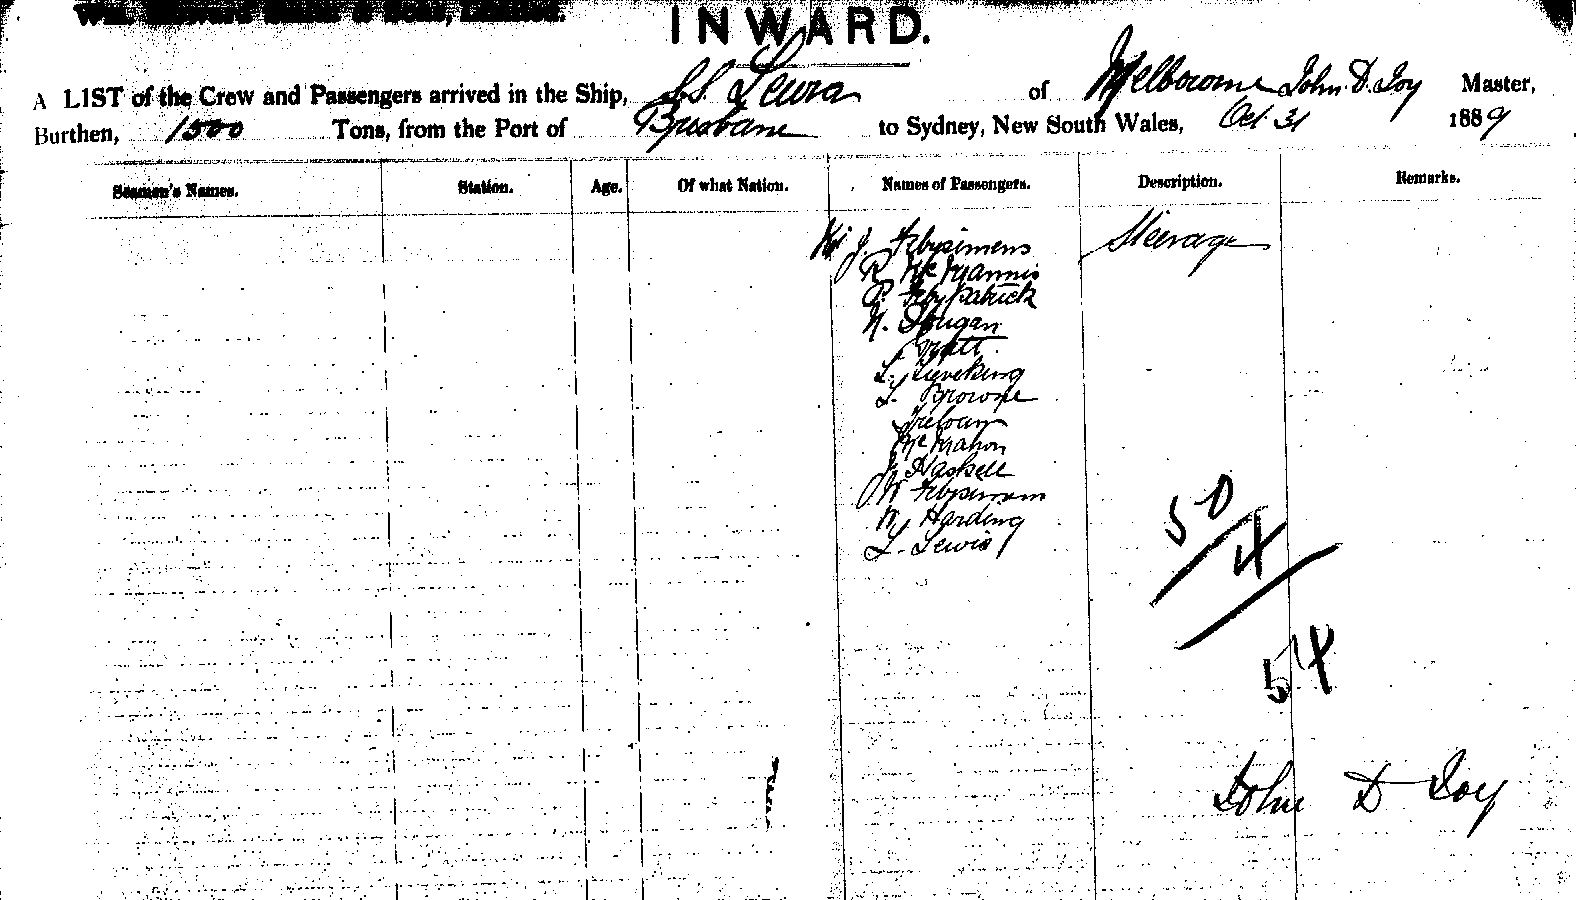 INWARD.
A LIST of the Crew and Passengers arrived in the Ship, S.S. Leura of Melbourne John. D. Joy Master,
Burthen, 1500 Tons, from the Port of Brisbane to Sydney, New South Wales, Oct 31 1889
Seamen's Names. Station. Age. Of what Nation. Names of Passengers. Description. Remarks.
J. Fitzsimens Steerage
R McMannis
P. Fitzpatrick
Dougan
Pyatt
L. Sieveking
L. Browne
McMahon
Haskell
W Fitzsimens
W Harding
L. Lewis
50
4
54
John D Joy